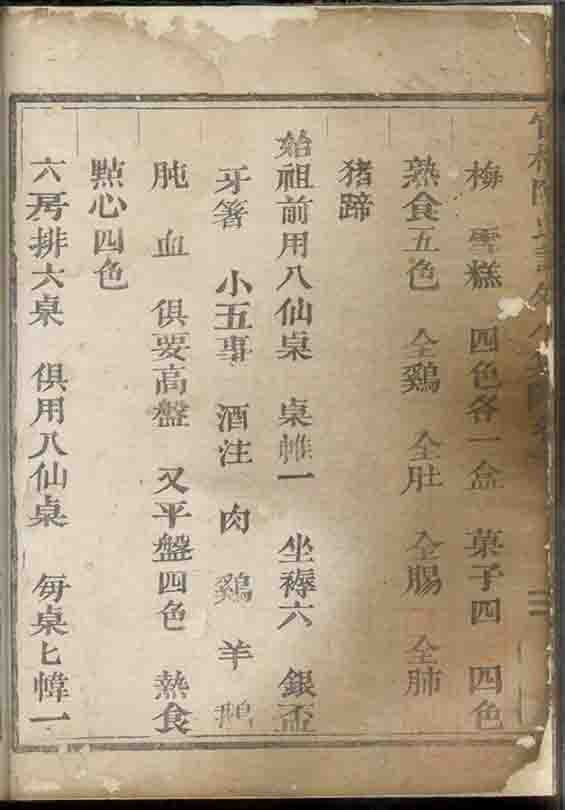 梅 雪糕 四色各一盒 菓子四 四色
熟食五色 全鷄 全肚 全腸 全肺
猪蹄
始祖前用八仙桌 桌帷一 坐褥六 銀盃
牙箸 小五事 酒注 肉 鷄 羊 鵝
肫 血 俱要高盤 又平盤四色 熱食
點心四色
六房排六桌 俱用八仙桌 每桌匕幃一